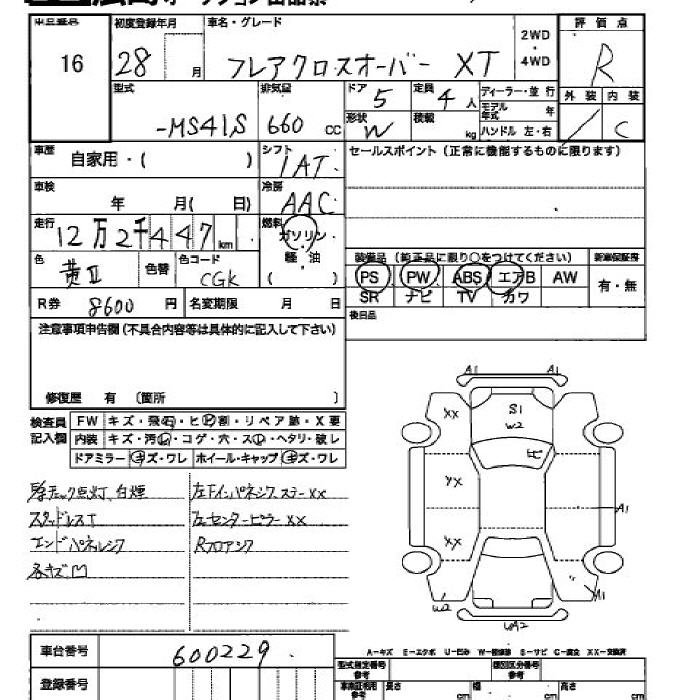 16
初度登録年月
28 月
車名・グレード
フレアクロスオーバー XT
2WD
・
4WD
評価点
R
型式
-MS41S
排気量
660 cc
ドア
5
定員
4 人
ディーラー・並行
モデル年式 年
ハンドル 左・右
形状
W
積載
kg
外装 内装
C
車歴
自家用・( )
シフト
IAT
セールスポイント(正常に機能するものに限ります)
車検
年 月( 日)
冷房
AAC
走行
12万2千447km
燃料
ガソリン
軽・油
( )
色
黄II
色替
色コード
CGK
装備品(純正品に限り○をつけてください)
PS PW ABS エアB AW
SR ナビ TV カワ
新車保証書
有・無
R券 8600 円
名変期限 月 日
後日品
注意事項申告欄(不具合内容等は具体的に記入して下さい)
修復歴 有 〔箇所 〕
検査員
記入欄
FW キズ・飛石・ヒビ割・リペア跡・X要
内装 キズ・汚れ・コゲ・穴・スレ・ヘタリ・破レ
ドアミラー キズ・ワレ ホイール・キャップ キズ・ワレ
点灯、白煙
左センターピラーXX
スタッドレスT
エンドパネル
Rフロア
各キズ凹
A1 A1
XX S1 W2
ヒビ
YY
A1
XY
A1
W2
WA2
車台番号
600229
登録番号
A-キズ E-エクボ U-凹み W-補修跡 S-サビ C-腐食 XX-交換済
型式指定番号
類別区分番号
長さ cm 幅 cm 高さ cm